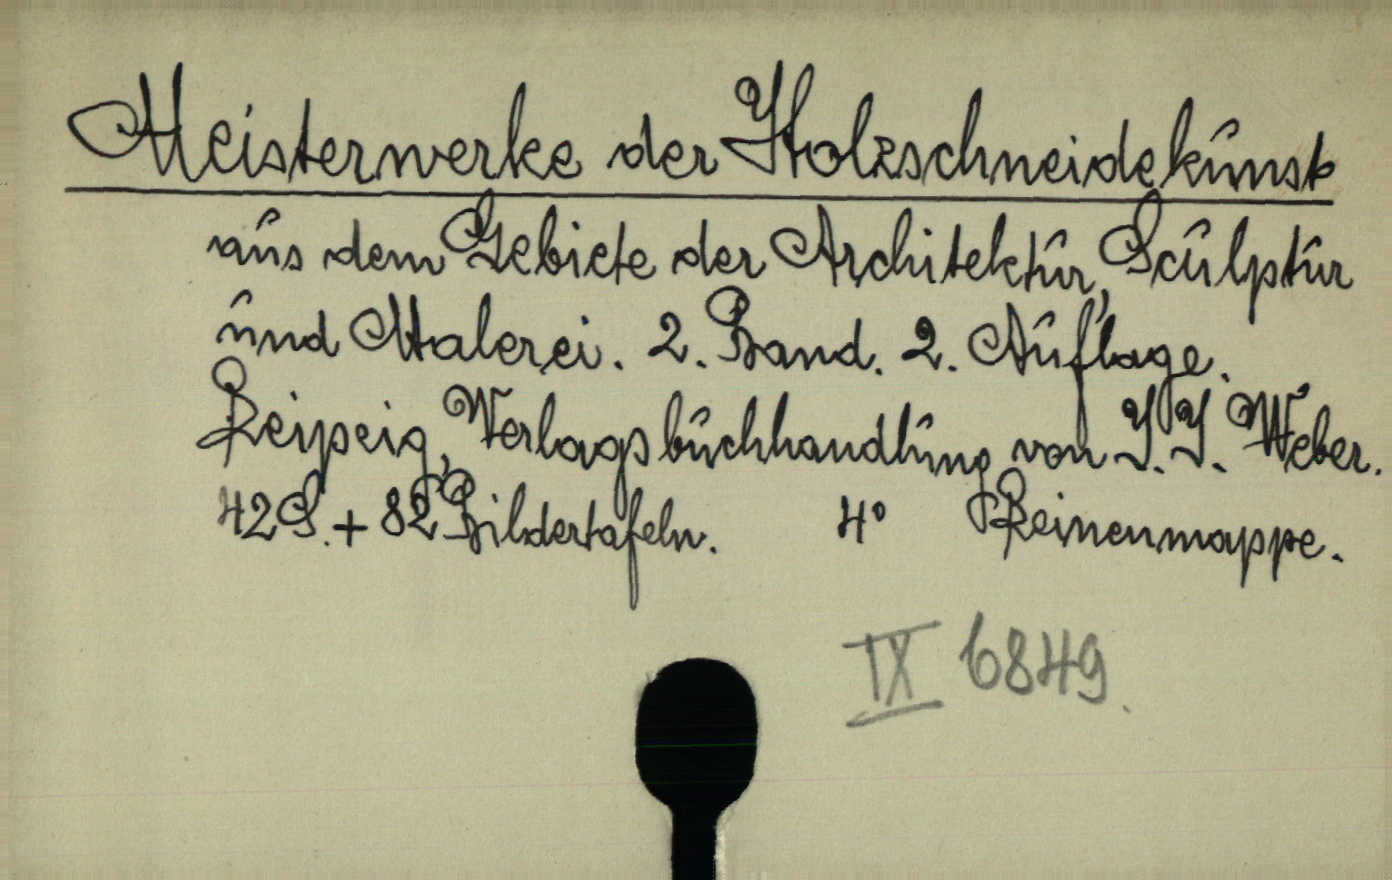 Meisterwerke der Holzschneidekunst
aus dem Gebiete der Architektur, Sculptur
und Malerei. 2. Band. 2. Auflage.
Leipzig, Verlagsbuchhandlung von J. J. Weber.
42 S. + 82 Bildertafeln. 4° Leinenmappe.
IX 6849.